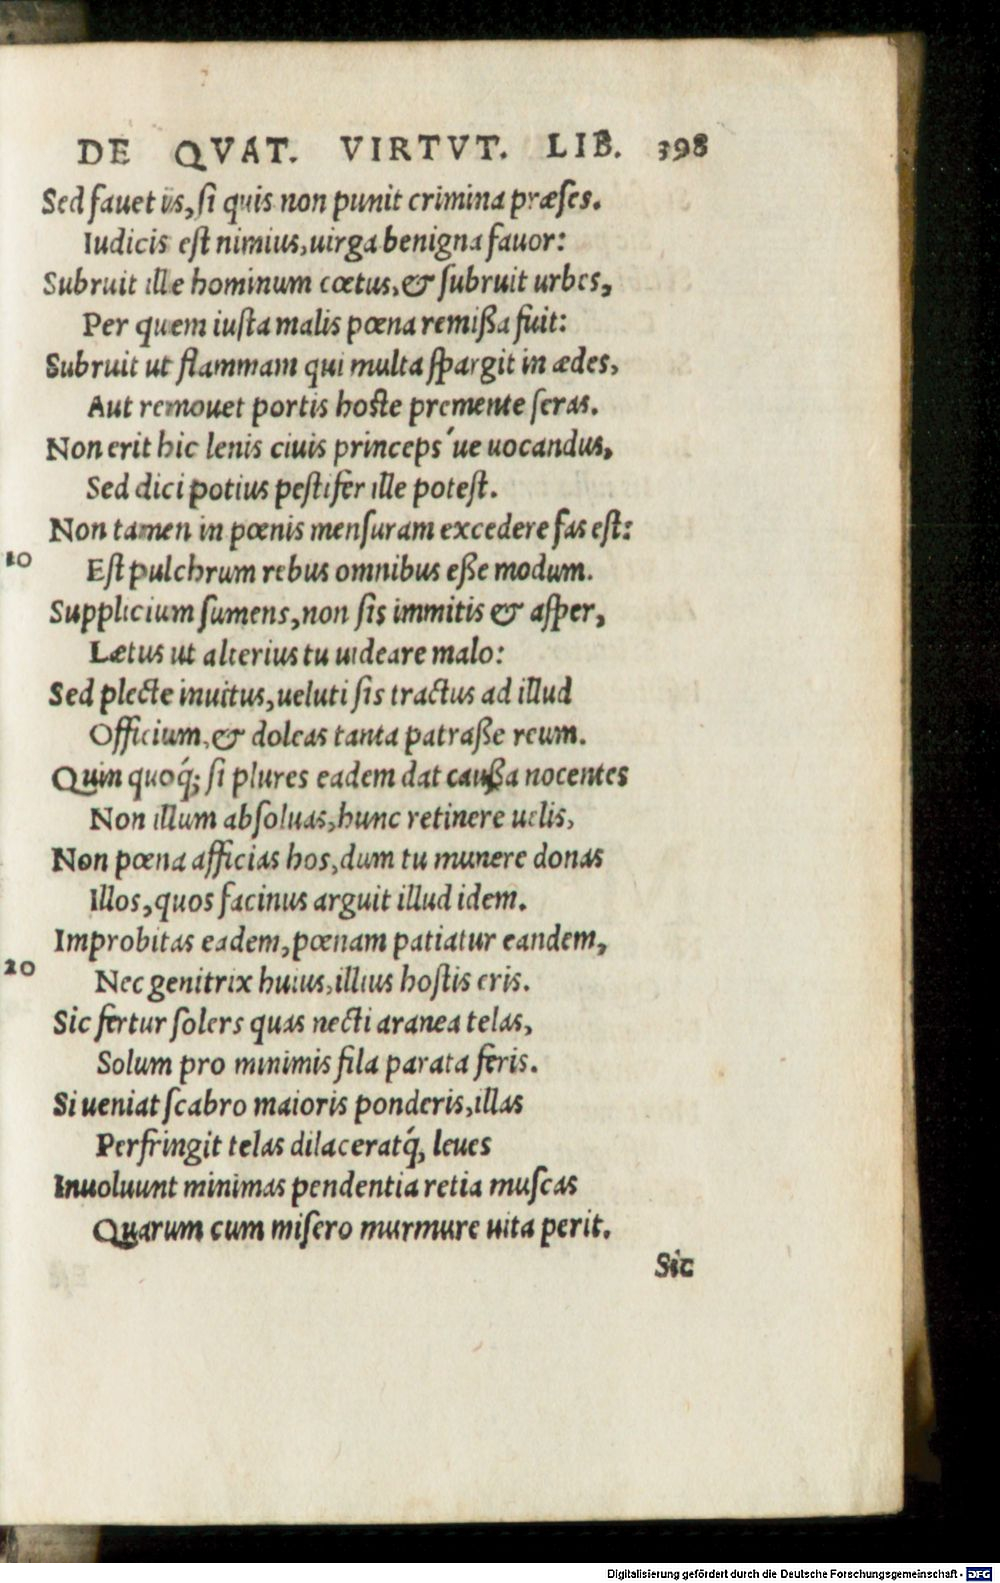 DE QVAT. VIRTVT. LIB. 398
Sed fauet iis, si quis non punit crimina præses.
Iudicis est nimius, uirga benigna fauor:
Subruit ille hominum cœtus, & subruit urbes,
Per quem iusta malis pœna remißa fuit:
Subruit ut flammam qui multa spargit in ædes,
Aut remouet portis hoste premente seras.
Non erit hic lenis ciuis princeps´ue uocandus,
Sed dici potius pestifer ille potest.
Non tamen in pœnis mensuram excedere fas est:
10 Est pulchrum rebus omnibus eße modum.
Supplicium sumens, non sis immitis & asper,
Lætus ut alterius tu uideare malo:
Sed plecte inuitus, ueluti sis tractus ad illud
Officium, & doleas tanta patraße reum.
Quin quoq́; si plures eadem dat caußa nocentes
Non illum absoluas, hunc retinere uelis,
Non pœna afficias hos, dum tu munere donas
Illos, quos facinus arguit illud idem.
Improbitas eadem, pœnam patiatur eandem,
20 Nec genitrix huius, illius hostis eris.
Sic fertur solers quas necti aranea telas,
Solum pro minimis fila parata feris.
Si ueniat scabro maioris ponderis, illas
Perfringit telas dilaceratq́, leues
Inuoluunt minimas pendentia retia muscas
Quarum cum misero murmure uita perit.
Sic
Digitalisierung gefördert durch die Deutsche Forschungsgemeinschaft - DFG